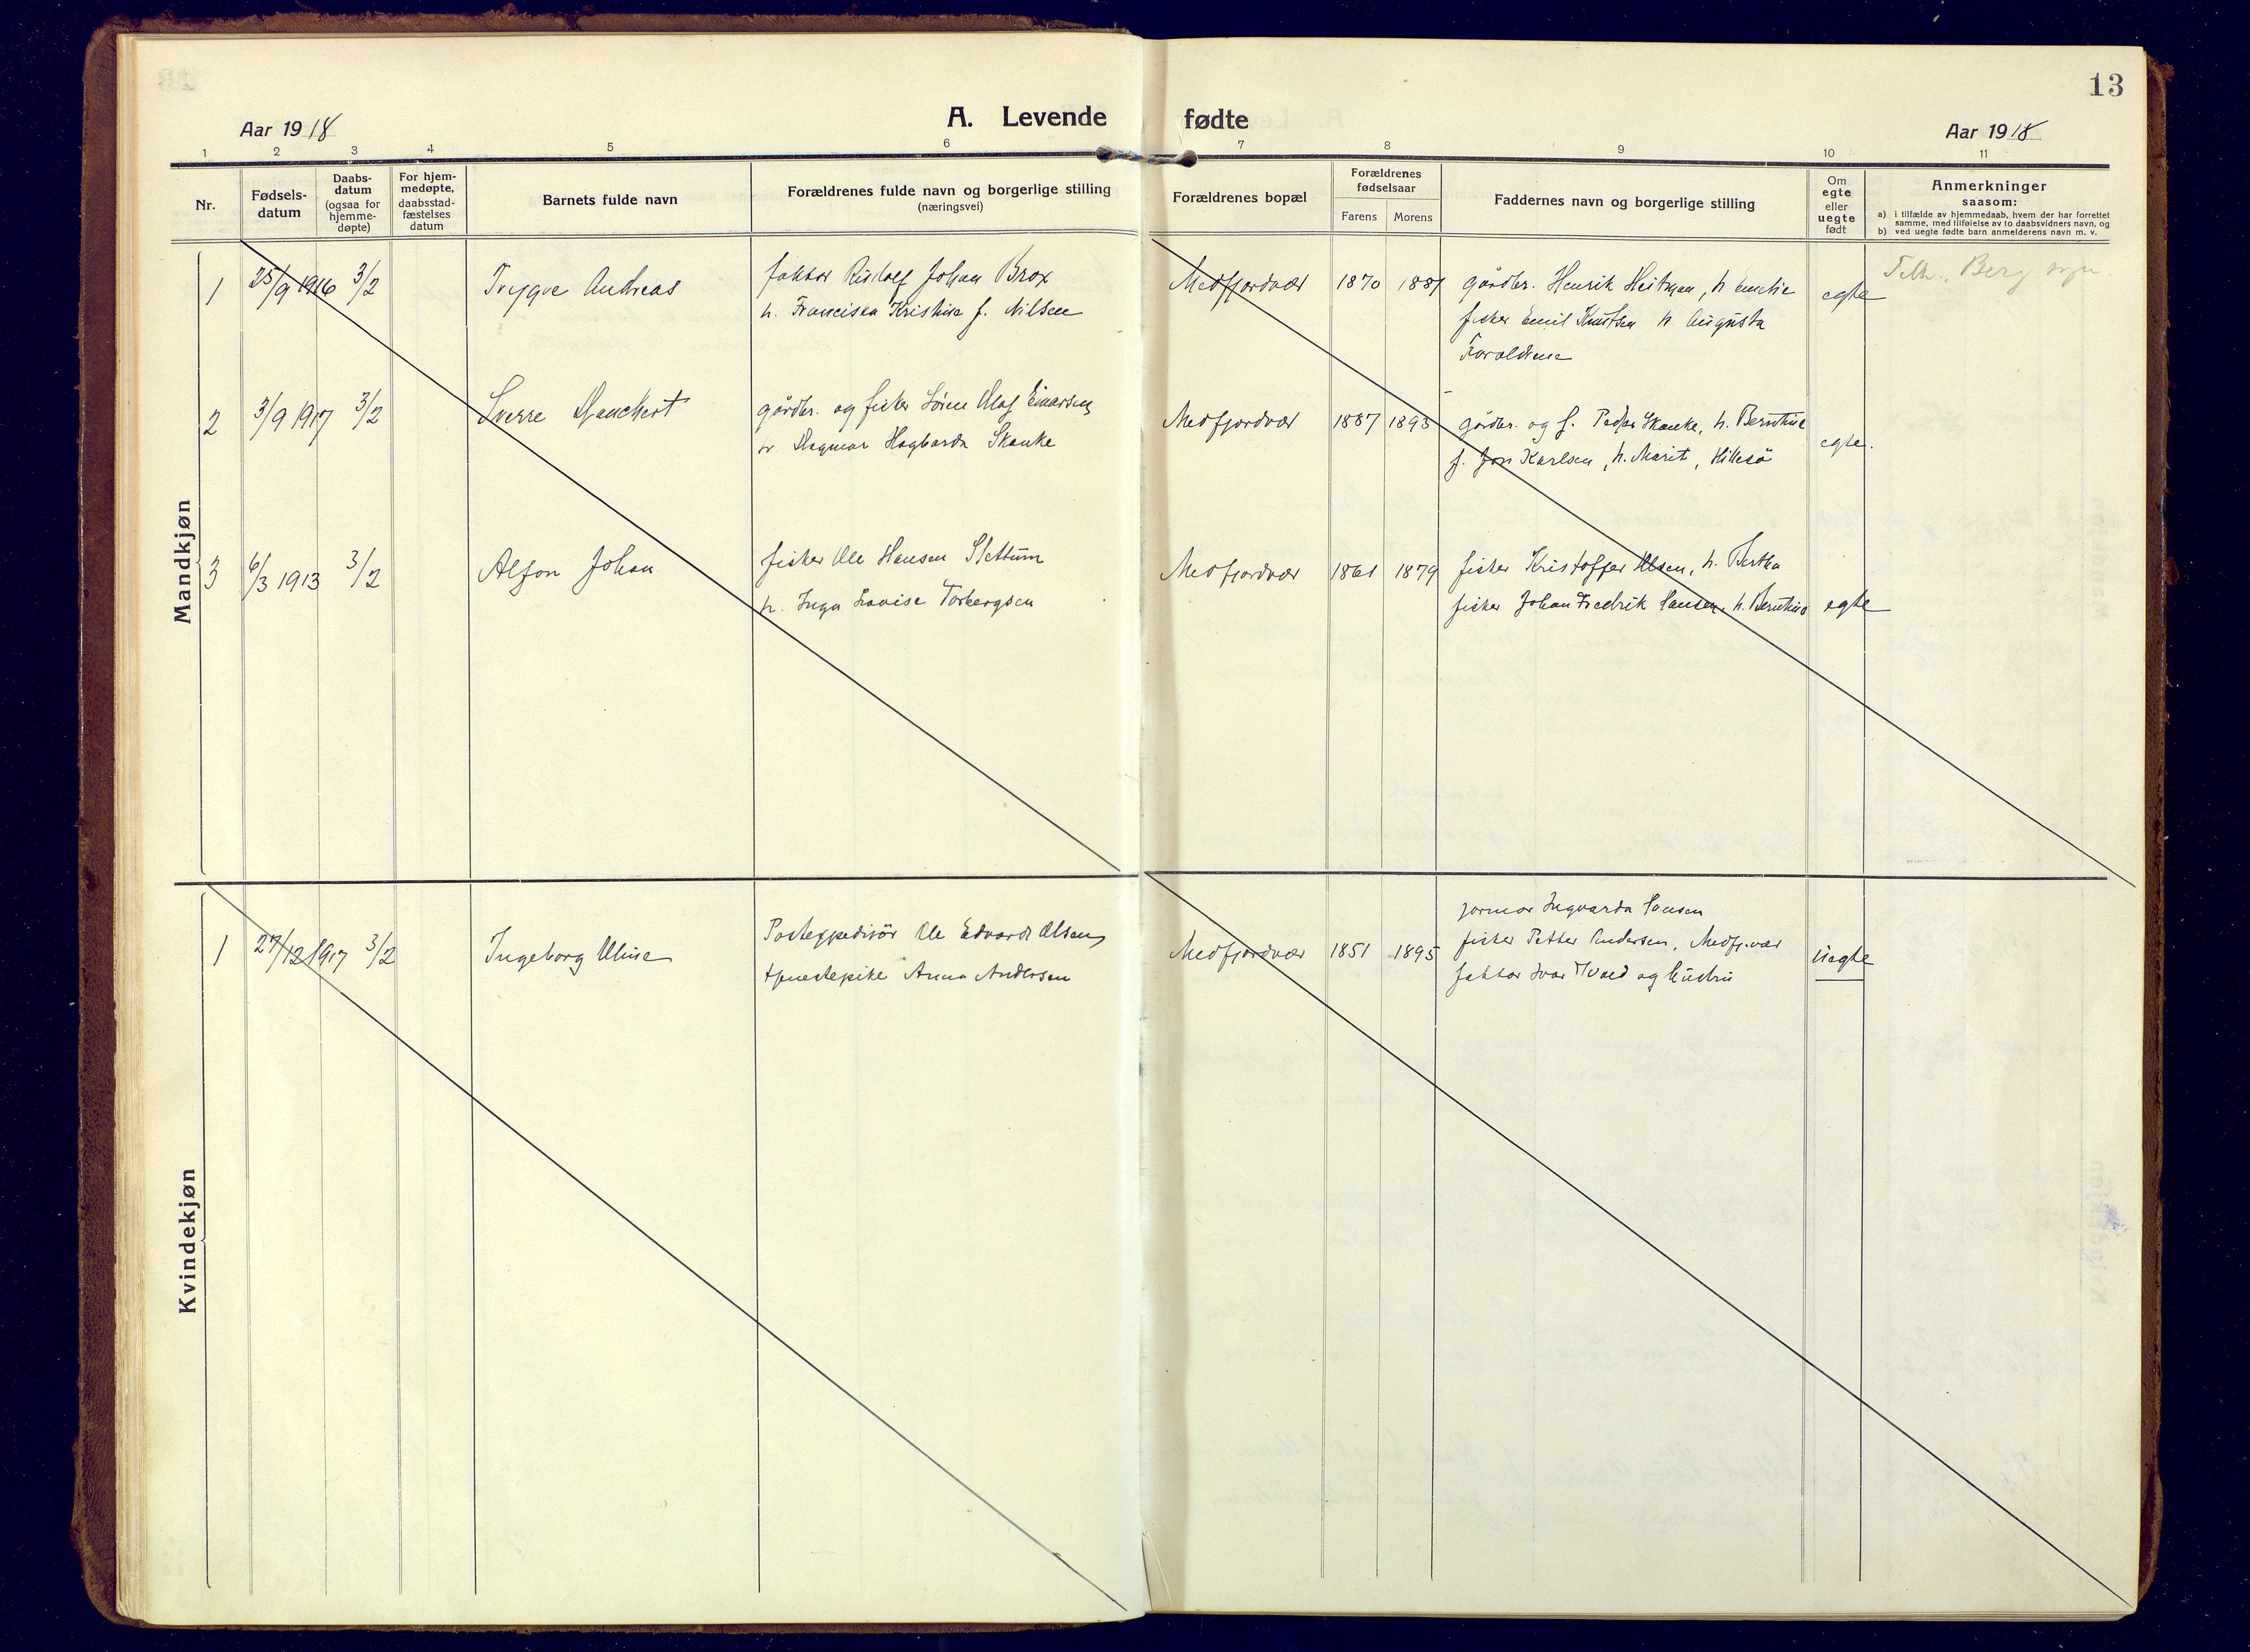 13
A. Levende fødte
Aar 1918
Aar 1918
1 2 3 4 5 6 7 8 9 10 11
Nr.
Fødsels-
datum
Daabs-
datum
(ogsaa for
hjemme-
døpte)
For hjem-
medøpte,
daabsstad-
fæstelses
datum
Barnets fulde navn
Forældrenes fulde navn og borgerlige stilling
(næringsvei)
Forældrenes bopæl
Forældrenes
fødselsaar
Farens Morens
Faddernes navn og borgerlige stilling
Om
egte
eller
uegte
født
Anmerkninger
saasom:
a) i tilfælde av hjemmedaab, hvem der har forrettet
samme, med tilføielse av to daabsvidners navn, og
b) ved uegte fødte barn anmelderens navn m. v.
Mandkjøn
1 25/9 1916 3/2 Trygve Andreas
faktor Rudolf Johan Brox
h. Franciska Kristine f. Nilsen
Medfjordvær 1870 1881
gårdbr. Henrik Heitman, h Emelie
fisker Emil Knutsen h Augusta
Foraldrene
egte
Berg sogn
2 3/9 1917 3/2 Sverre Manchert
gårdbr. og fisker Sören Olaf Einarsen
Dagmar Hagbarda Skanke
Medfjordvær 1887 1893
gårdbr. og f. Peder Skanke, h. Berntine
f. Jon Karlsen, h. Marit, Hillesö
egte.
3 6/3 1913 3/2 Alfon Johan
fisker Ole Hansen Slettum
h. Inga Lovise Torbergsen
Medfjordvær 1861 1879
fisker Kristoffer Olsen, h. Bertha
fisker Johan Fredrik Hansen, h. Berntine
egte
Kvindekjøn
1 27/12 1917 3/2 Ingeborg Oline
Postexpeditör Ole Edvard Olsen
tjenestepike Anna Andersen
Medfjordvær 1851 1895
jormor Ingvarda Hansen
fisker Petter Andersen, Medfj.vær
faktor Ivar Wold og hustru
uegte